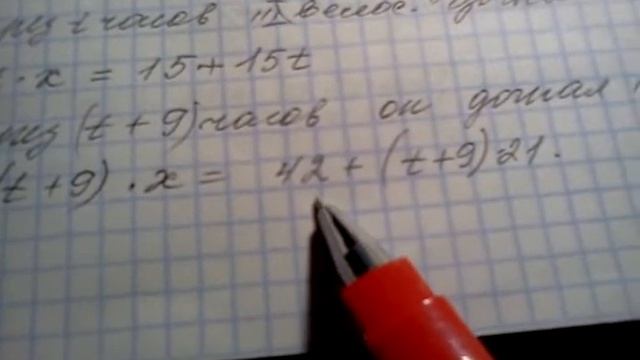 t часов III велос.
· x = 15 + 15t
(t + 9) часов он догнал
(t + 9) · x = 42 + (t + 9) 21.